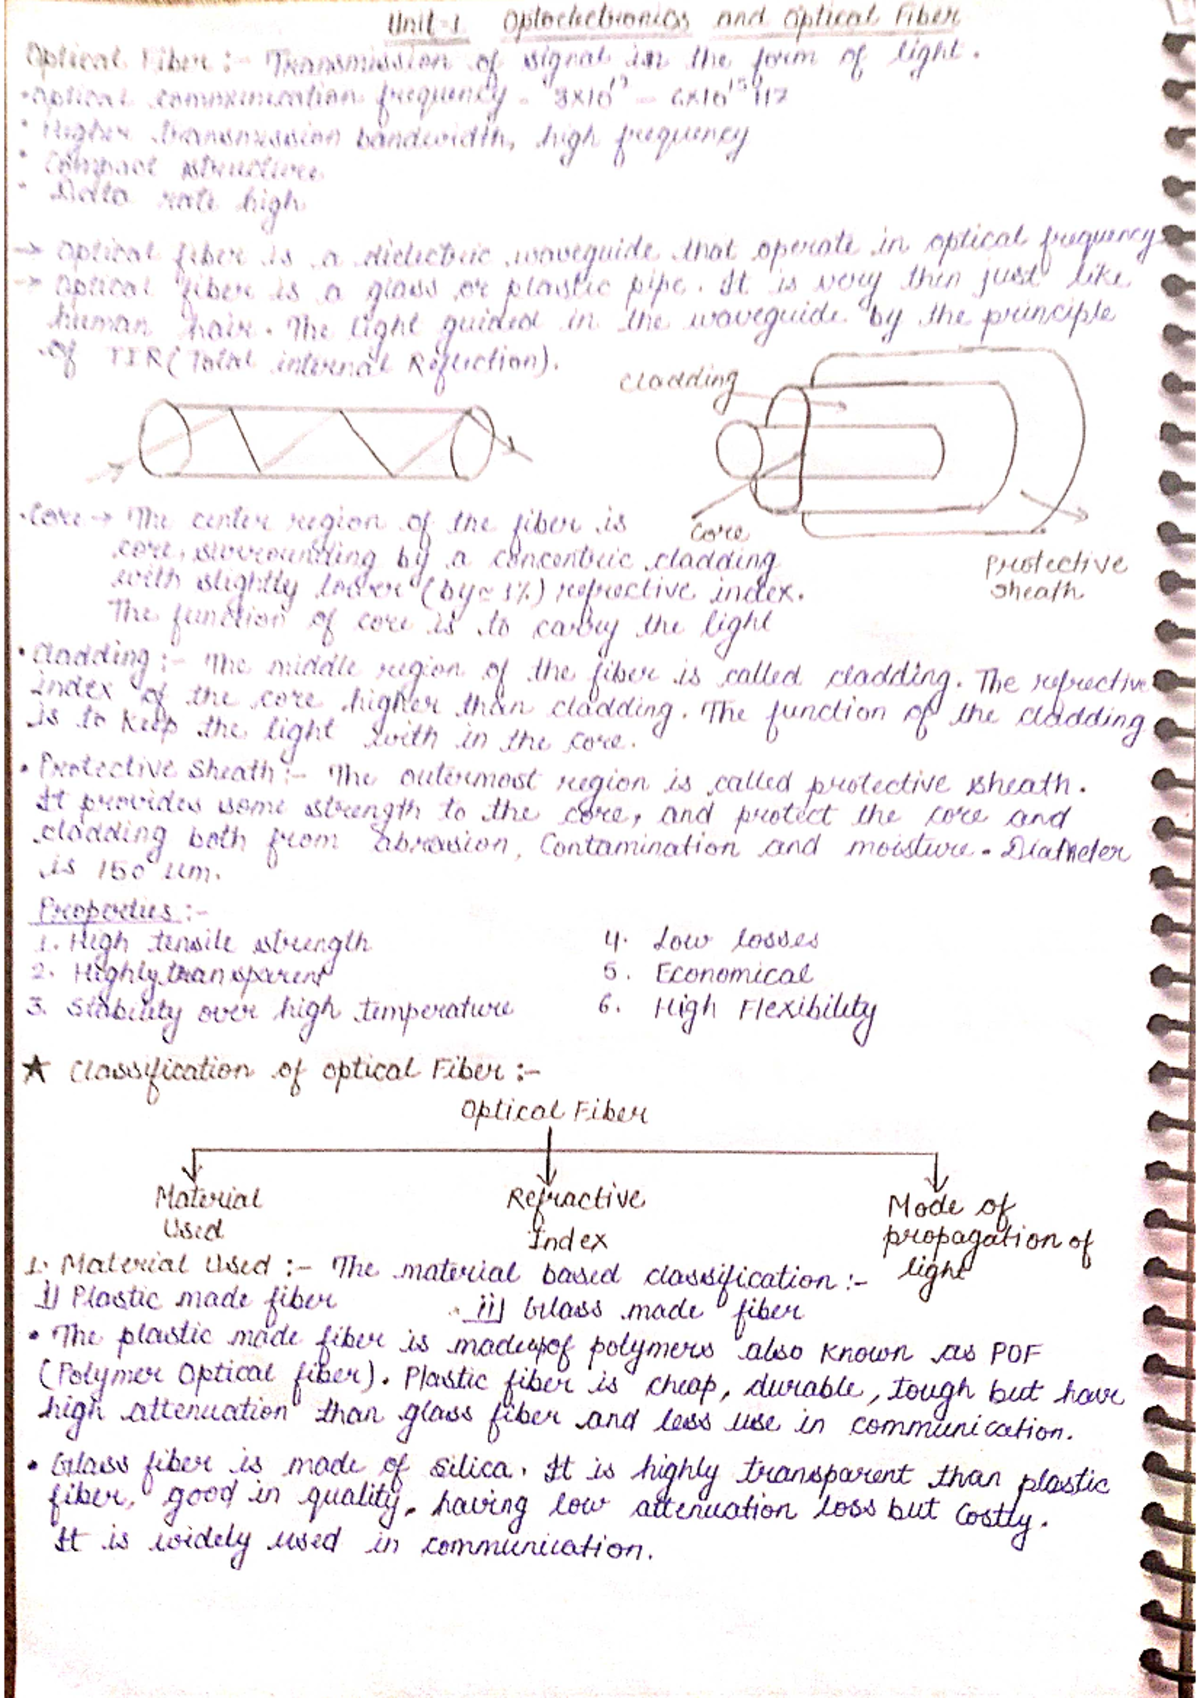 Unit-1 Optoelectronics and Optical Fiber
Optical Fiber :- Transmission of signal in the form of light.
• Optical communication frequency -
• Higher transmission bandwidth, high frequency
• Compact structure
• Data rate high
→ Optical fiber is a dielectric waveguide that operate in optical frequency.
→ Optical fiber is a glass or plastic pipe. It is very then just like
human hair. The light guided in the waveguide by the principle
of TIR (Total internal Reflection).
cladding
core
Protective
sheath
• Core → The center region of the fiber is
core, surrounding by a concentric cladding
with slightly lower (by ≈ 1%) refrective index.
The function of core is to carry the light
• Cladding :- The middle region of the fiber is called cladding. The refrective
index of the core higher than cladding. The function of the cladding
is to keep the light with in the core.
• Protective Sheath :- The outermost region is called protective sheath.
It provides some strength to the core, and protect the core and
cladding both from abrasion, Contamination and moisture. Diameter
is 150 um.
Properties :-
1. High tensile strength
2. Highly transparent
3. Stability over high temperature
4. Low losses
5. Economical
6. High Flexibility
★ Classification of optical Fiber :-
Optical Fiber
Material
Used
Refractive
Index
Mode of
propagation of
light
1. Material Used :- The material based classification :-
i) Plastic made fiber ii) Glass made fiber
• The plastic made fiber is madeupof polymers also known as POF
(Polymer Optical fiber). Plastic fiber is cheap, durable, tough but have
high attenuation than glass fiber and less use in communication.
• Glass fiber is made of silica. It is highly transparent than plastic
fiber, good in quality, having low attenuation loss but costly.
It is widely used in communication.